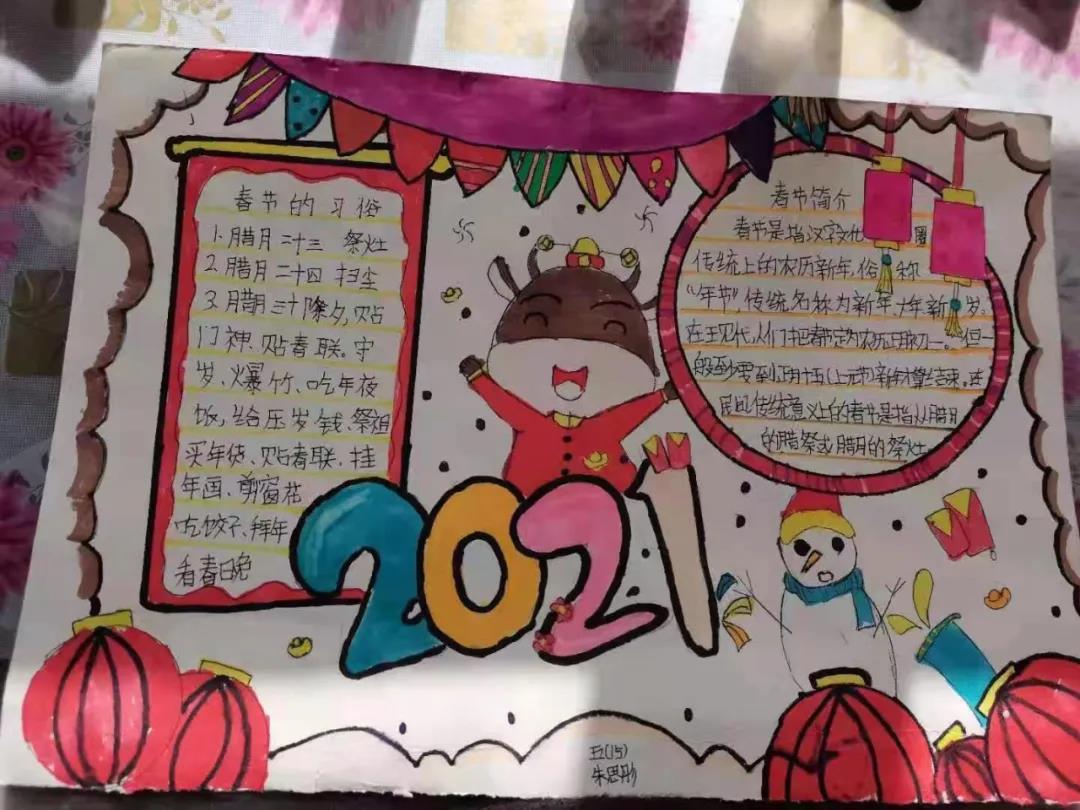 春节的习俗
1.腊月二十三 祭灶
2.腊月二十四 扫尘
3.腊月三十除夕,贴
门神、贴春联。守
岁、爆竹、吃年夜
饭,给压岁钱.祭祖
买年货、贴春联、挂
年画、剪窗花
吃饺子、拜年
看春晚
2021
春节简介
春节是指汉字文化圈
传统上的农历新年,俗称
“年节”,传统名称为新年、大年、新岁。
在现代,人们把春节定为农历正月初一。但一
般至少要到正月十五(上元节)新年才算结束.在
民间,传统意义上的春节是指从腊月
的腊祭或腊月的祭灶
五(15)
朱思彤